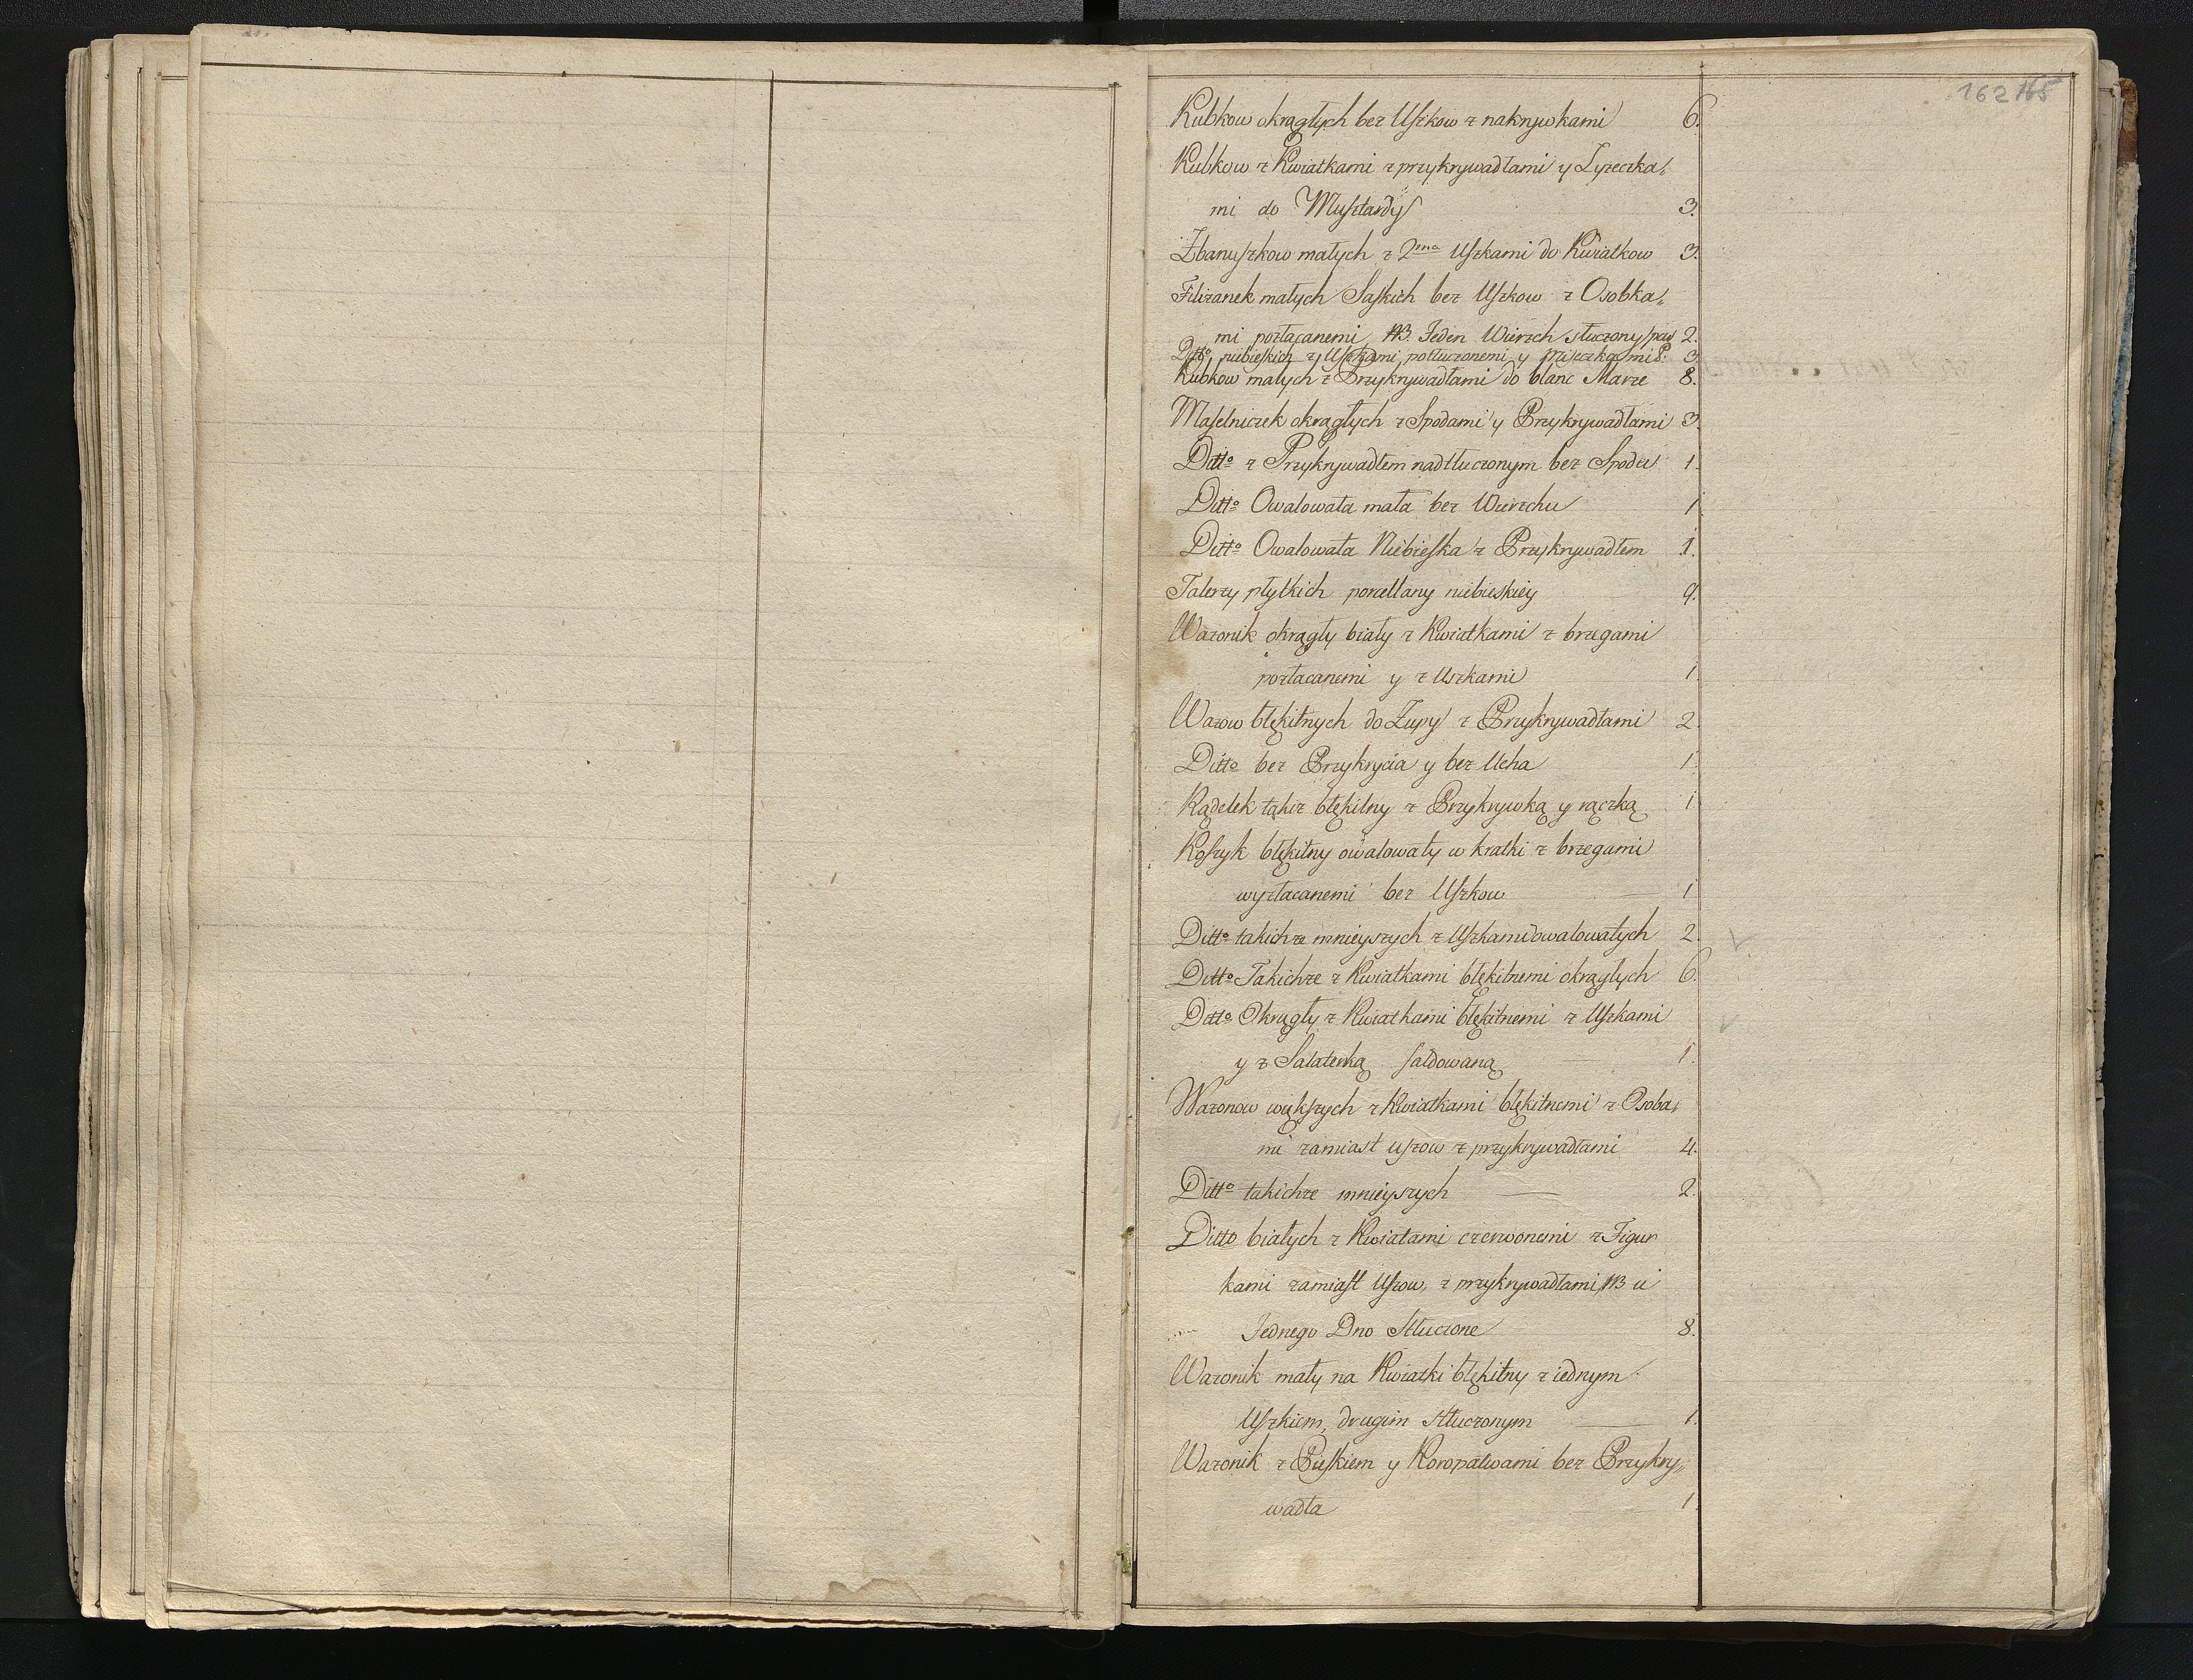 162 165
Kubkow okrągłych bez Uszkow z nakrywkami 6.
Kubkow z Kwiatkami z przykrywadłami y Łyżeczka„
mi do Musztardy 3.
Zbanuszkow małych z 2ma Uszkami do Kwiatkow 3.
Filiżanek małych Saskich bez Uszkow z Osobka„
mi pozłacanemi NB. Jeden Wierzch stłuczony par 2.
Ditto niebieskich z Uszkami potłuczonemi y Miseczkami P. 3
Kubkow małych z Przykrywadłami do blanc Marze 8.
Maselniczek okrągłych z Spodami y Przykrywadłami 3.
Ditto z Przykrywadłem nadtłuczonym bez Spodu 1.
Ditto Owalowata mała bez Wierzchu 1
Ditto Owalowata Niebieska z Przykrywadłem 1.
Talerzy płytkich porcellany niebieskiey 9.
Wazonik okrągły biały z Kwiatkami z brzegami
pozłacanemi y z Uszkami 1.
Wazow błękitnych do Zupy z Przykrywadłami 2.
Ditto bez Przykrycia y bez Ucha 1
Rądelek takiż błękitny z Przykrywką y rączką 1
Koszyk błękitny owalowaty w kratki z brzegami
wyzłacanemi bez Uszkow 1
Ditto takichże mnieyszych z Uszkami owalowatych 2.
Ditto Takichże z Kwiatkami błękitnemi okrągłych 6.
Ditto Okrągły z Kwiatkami błękitnemi z Uszkami
y z Salaterką faldowaną 1
Wazonow większych z Kwiatkami błękitnemi z Osoba„
mi zamiast uszow z przykrywadłami 4.
Ditto takichże mnieyszych 2.
Ditto białych z Kwiatami czerwonemi z Figur
kami zamiast Uszow, z przykrywadłami, NB u
Jednego Dno Stłuczone 8.
Wazonik mały na Kwiatki błękitny z iednym
Uszkiem, drugim stłuczonym 1.
Wazonik z Pieskiem y Koropatwami bez Przykry„
wadła 1